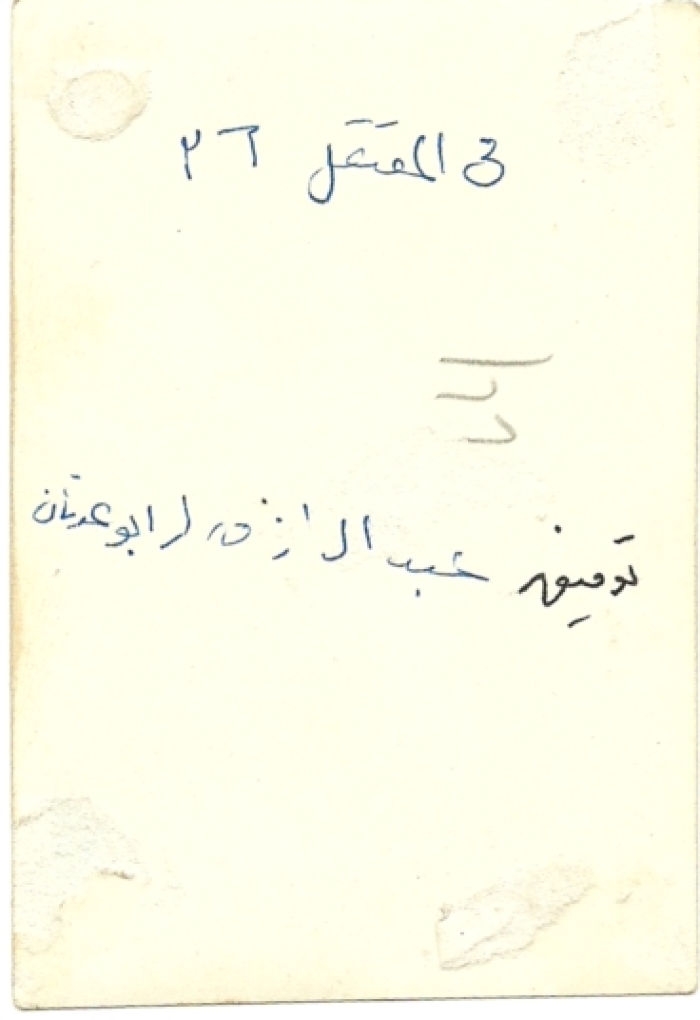 في المعتقل ٢٦
توفيق عبد الرازق / ابو عدنان